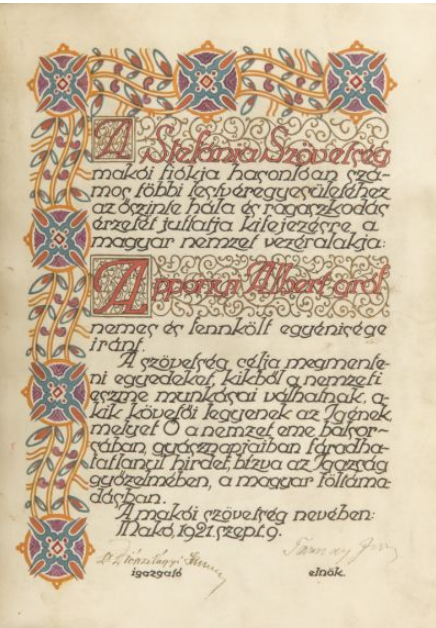 A Stefánia Szövetség
makói fiókja hasonlóan szá-
mos többi testvéregyesületéhez
az őszinte hála és ragaszkodás
érzetét juttatja kifejezésre a
magyar nemzet vezéralakja:
Apponyi Albert gróf
nemes és fennkölt egyénisége
iránt.
A szövetség célja megmente-
ni egyedeket, kikből a nemzeti
eszme munkásai válhatnak, a-
kik követői legyenek az Igének
melyet Ő a nemzet eme balsor-
sában, gyásznapjaiban fáradha-
tatlanul hirdet, bízva az Igazság
győzelmében, a magyar föltáma-
dásban.
A makói szövetség nevében:
Makó, 1921. szept. 9.
igazgató
elnök.